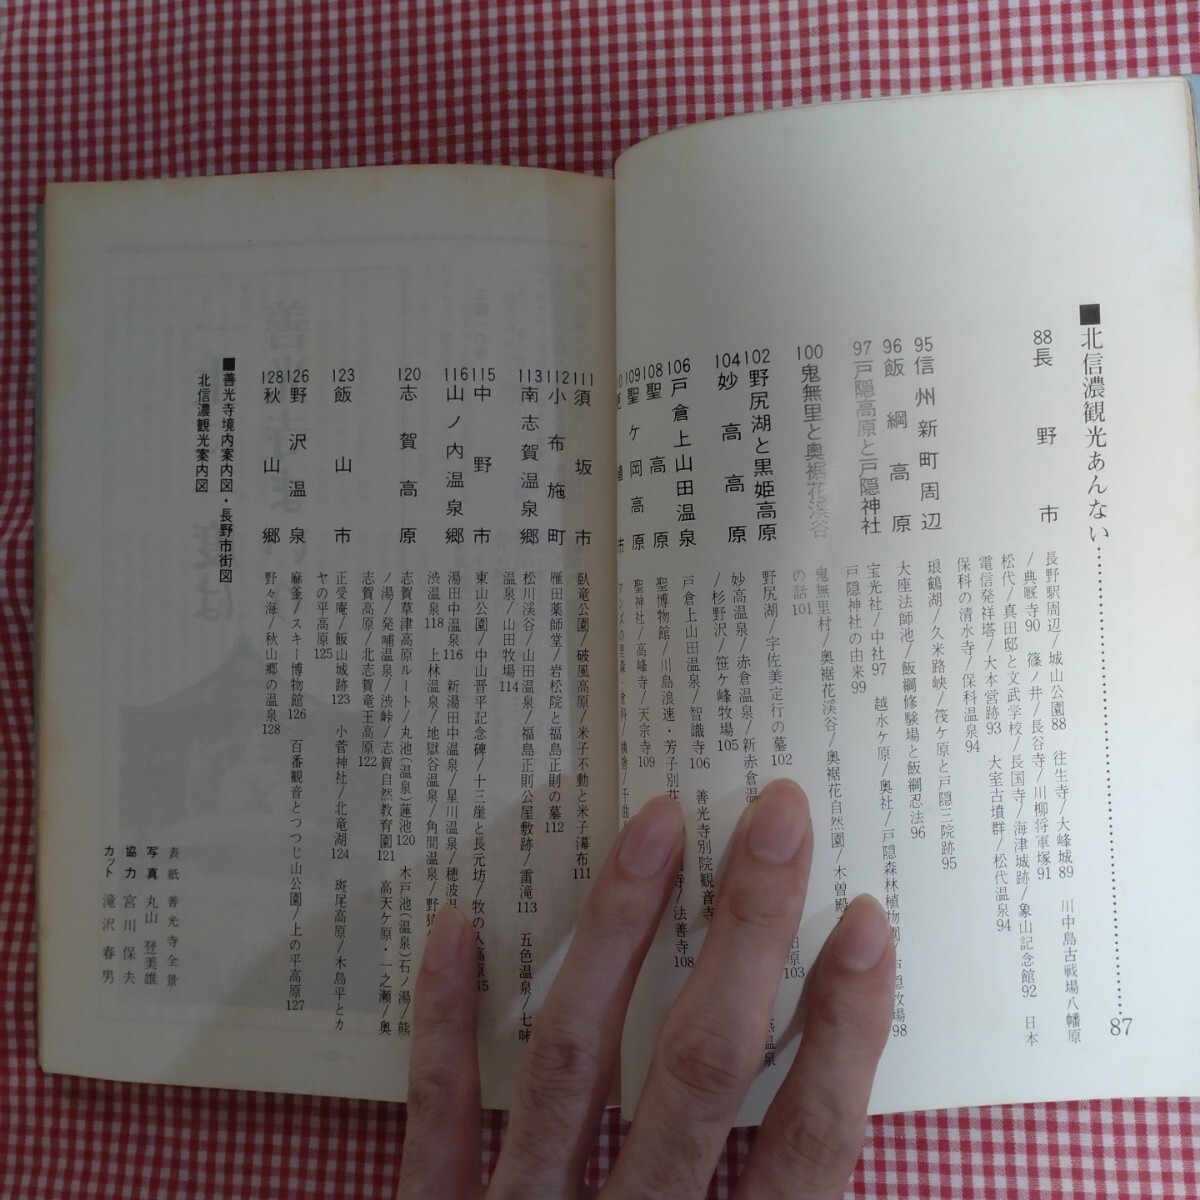 ■北信濃観光あんない……………87
88長野市
長野駅周辺/城山公園88　往生寺/大峰城89　川中島古戦場八幡原
/典厩寺90　篠ノ井/長谷寺/川柳将軍塚91
松代/真田邸と文武学校/長国寺/海津城跡/象山記念館92　日本
電信発祥塔/大本営跡93　大室古墳群/松代温泉94
保科の清水寺/保科温泉94
95信州新町周辺
琅鶴湖/久米路峡/筏ケ原と戸隠三院跡95
96飯綱高原
大座法師池/飯綱修験場と飯綱忍法96
97戸隠高原と戸隠神社
宝光社/中社97　越水ケ原/奥社/戸隠森林植物園
隠牧場98
戸隠神社の由来99
100鬼無里と奥裾花渓谷
鬼無里村/奥裾花渓谷/奥裾花自然園/木曽殿
の話101
102野尻湖と黒姫高原
野尻湖/宇佐美定行の墓102
原103
104妙高高原
妙高温泉/赤倉温泉/新赤倉温
燕温泉
/杉野沢/笹ケ峰牧場105
106戸倉上山田温泉
戸倉上山田温泉/智識寺106　善光寺別院観音寺
108聖高原
聖博物館/川島浪速・芳子別荘
寺/法善寺108
109聖ケ岡高原
聖神社/高峰寺/天宗寺109
市
111須坂市
臥竜公園/破風高原/米子不動と米子瀑布111
112小布施町
雁田薬師堂/岩松院と福島正則の墓112
113南志賀温泉郷
松川渓谷/山田温泉/福島正則公屋敷跡/雷滝113　五色温泉/七味
温泉/山田牧場114
115中野市
東山公園/中山晋平記念碑/十三崖と長元坊/牧の入高原115
116山ノ内温泉郷
湯田中温泉116　新湯田中温泉/星川温泉/穂波温
渋温泉118　上林温泉/地獄谷温泉/角間温泉/野猿
120志賀高原
志賀草津高原ルート/丸池(温泉)蓮池120　木戸池(温泉)石ノ湯/熊
ノ湯/発哺温泉/渋峠/志賀自然教育園121　高天ケ原・一之瀬/奥
志賀高原/北志賀竜王高原122
123飯山市
正受庵/飯山城跡123　小菅神社/北竜湖124　斑尾高原/木島平とカ
ヤの平高原125
126野沢温泉
麻釜/スキー博物館126　百番観音とつつじ山公園/上の平高原127
128秋山郷
野々海/秋山郷の温泉128
■善光寺境内案内図・長野市街図
北信濃観光案内図
表紙　善光寺全景
写真　丸山登美雄
協力　宮川保夫
カット　滝沢春男